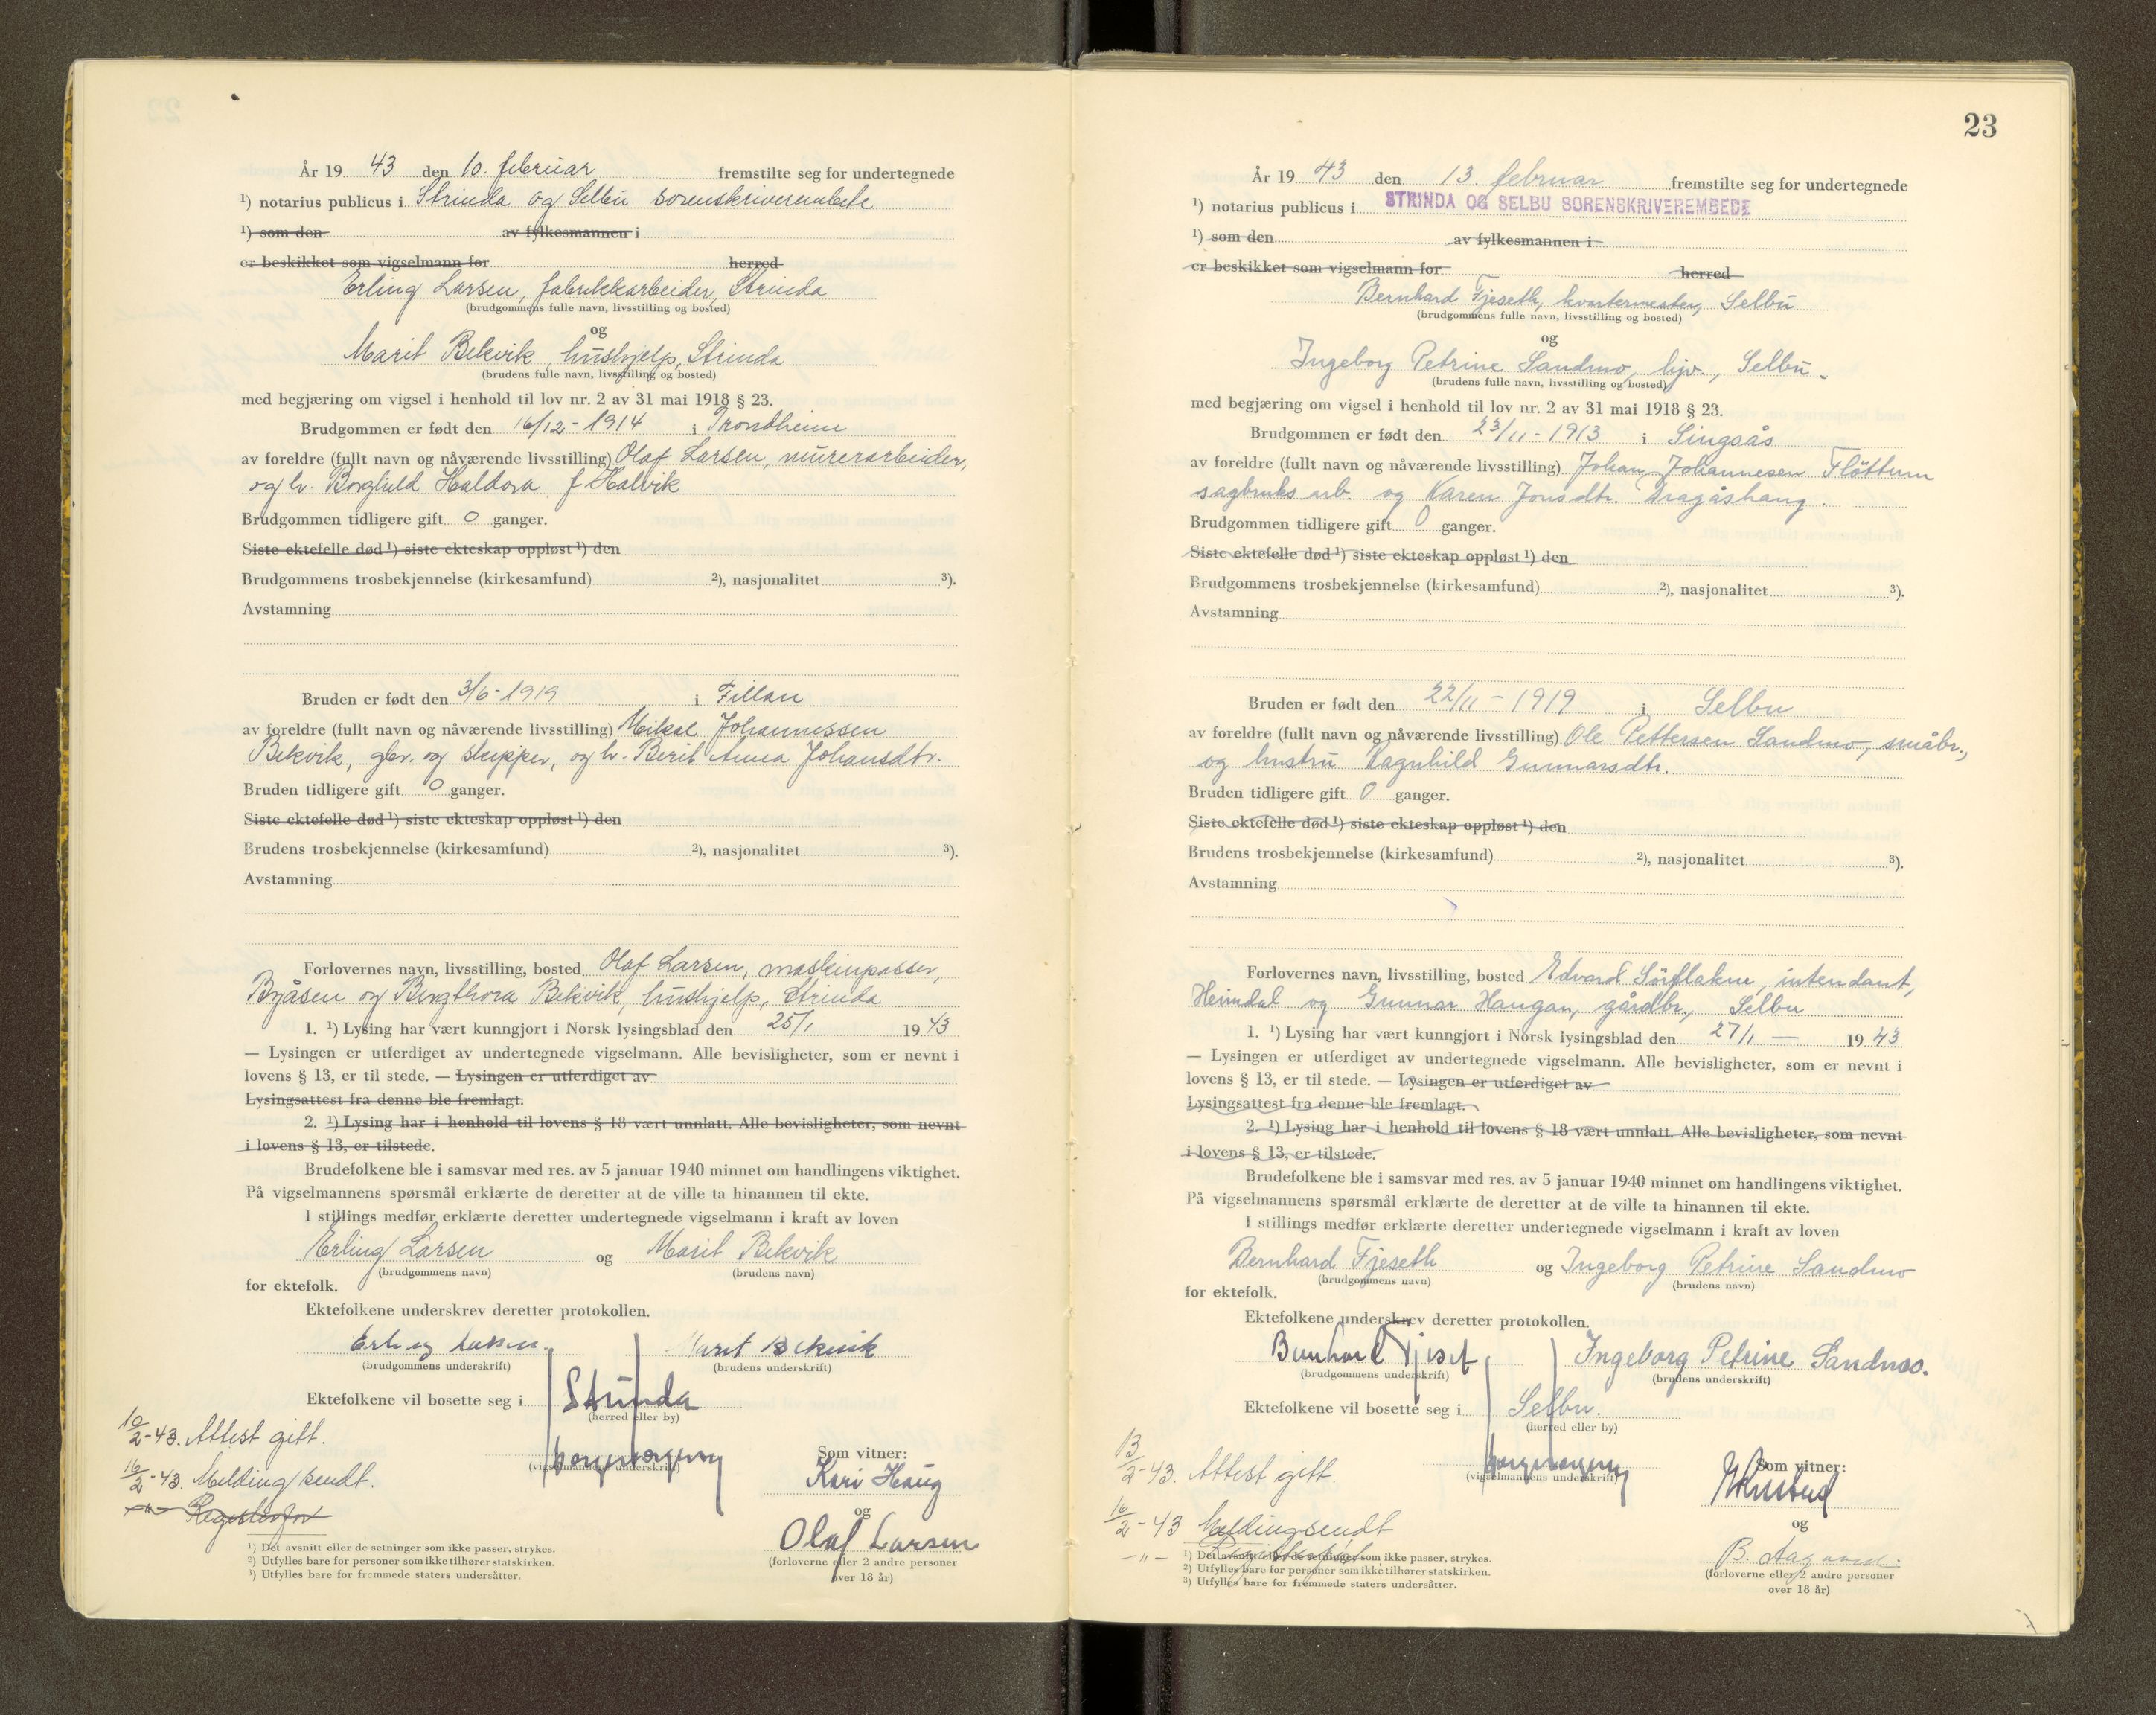 År 19 43 den 10. februar fremstilte seg for undertegnede
¹) notarius publicus i Strinda og Selbu sorenskriverembete
¹) som den av fylkesmannen i
er beskikket som vigselmann for herred
Erling Larsen, fabrikkarbeider, Strinda
(brudgommens fulle navn, livsstilling og bosted)
og
Marit Bekvik, hushjelp, Strinda
(brudens fulle navn, livsstilling og bosted)
med begjæring om vigsel i henhold til lov nr. 2 av 31 mai 1918 § 23.
Brudgommen er født den 16/12-1914 i Trondheim
av foreldre (fullt navn og nåværende livsstilling) Olaf Larsen, murerarbeider,
og h. Borghild Haldora f. Halvik
Brudgommen tidligere gift 0 ganger.
Siste ektefelle død ¹) siste ekteskap oppløst ¹) den
Brudgommens trosbekjennelse (kirkesamfund) ²), nasjonalitet ³).
Avstamning
Bruden er født den 3/6-1919 i Fillan
av foreldre (fullt navn og nåværende livsstilling) Mikal Johannessen
Bekvik, gbr. og skipper, og h. Berit Anna Johansdtr.
Bruden tidligere gift 0 ganger.
Siste ektefelle død ¹) siste ekteskap oppløst ¹) den
Brudens trosbekjennelse (kirkesamfund) ²), nasjonalitet ³).
Avstamning
Forlovernes navn, livsstilling, bosted Olaf Larsen, maskinpasser,
Byåsen og Bergthora Bekvik, hushjelp, Strinda
1. ¹) Lysing har vært kunngjort i Norsk lysingsblad den 25/1 19 43
— Lysingen er utferdiget av undertegnede vigselmann. Alle bevisligheter, som er nevnt i
lovens § 13, er til stede. — Lysingen er utferdiget av
Lysingsattest fra denne ble fremlagt.
2. ¹) Lysing har i henhold til lovens § 18 vært unnlatt. Alle bevisligheter, som nevnt
i lovens § 13, er tilstede.
Brudefolkene ble i samsvar med res. av 5 januar 1940 minnet om handlingens viktighet.
På vigselmannens spørsmål erklærte de deretter at de ville ta hinannen til ekte.
I stillings medfør erklærte deretter undertegnede vigselmann i kraft av loven
Erling Larsen og Marit Bekvik
(brudgommens navn) (brudens navn)
for ektefolk.
Ektefolkene underskrev deretter protokollen.
Erling Larsen. Marit Bekvik
(brudgommens underskrift) (brudens underskrift)
Ektefolkene vil bosette seg i Strinda
(herred eller by)
10/2-43. Attest gitt.
(vigselmannens underskrift) Som vitner:
16/2-43. Melding sendt. Kari Haug
-"- Registerført og
Olaf Larsen
¹) Det avsnitt eller de setninger som ikke passer, strykes.
²) Utfylles bare for personer som ikke tilhører statskirken. (forloverne eller 2 andre personer
³) Utfylles bare for fremmede staters undersåtter. over 18 år)
23
År 19 43 den 13. februar fremstilte seg for undertegnede
¹) notarius publicus i STRINDA OG SELBU SORENSKRIVEREMBEDE
¹) som den av fylkesmannen i
er beskikket som vigselmann for herred
Bernhard Fjeseth, kvartermester, Selbu
(brudgommens fulle navn, livsstilling og bosted)
og
Ingeborg Petrine Sandmo, hjv., Selbu.
(brudens fulle navn, livsstilling og bosted)
med begjæring om vigsel i henhold til lov nr. 2 av 31 mai 1918 § 23.
Brudgommen er født den 23/11-1913 i Singsås
av foreldre (fullt navn og nåværende livsstilling) Johan Johannesen Fløttum
sagbruks arb. og Karen Jonsdtr. Dragåshaug.
Brudgommen tidligere gift 0 ganger.
Siste ektefelle død ¹) siste ekteskap oppløst ¹) den
Brudgommens trosbekjennelse (kirkesamfund) ²), nasjonalitet ³).
Avstamning
Bruden er født den 22/11-1919 i Selbu
av foreldre (fullt navn og nåværende livsstilling) Ole Pettersen Sandmo, småbr.,
og hustru Ragnhild Gunnarsdtr.
Bruden tidligere gift 0 ganger.
Siste ektefelle død ¹) siste ekteskap oppløst ¹) den
Brudens trosbekjennelse (kirkesamfund) ²), nasjonalitet ³).
Avstamning
Forlovernes navn, livsstilling, bosted Edvard Sörflakne, intendant,
Heimdal og Gunnar Haugan, gårdbr., Selbu
1. ¹) Lysing har vært kunngjort i Norsk lysingsblad den 27/1 — 19 43
— Lysingen er utferdiget av undertegnede vigselmann. Alle bevisligheter, som er nevnt i
lovens § 13, er til stede. — Lysingen er utferdiget av
Lysingsattest fra denne ble fremlagt.
2. ¹) Lysing har i henhold til lovens § 18 vært unnlatt. Alle bevisligheter, som nevnt
i lovens § 13, er tilstede.
Brudefolkene ble i samsvar med res. av 5 januar 1940 minnet om handlingens viktighet.
På vigselmannens spørsmål erklærte de deretter at de ville ta hinannen til ekte.
I stillings medfør erklærte deretter undertegnede vigselmann i kraft av loven
Bernhard Fjeseth og Ingeborg Petrine Sandmo
(brudgommens navn) (brudens navn)
for ektefolk.
Ektefolkene underskrev deretter protokollen.
Bernhard Fjeset Ingeborg Petrine Sandmo.
(brudgommens underskrift) (brudens underskrift)
Ektefolkene vil bosette seg i Selbu.
(herred eller by)
13/2-43. Attest gitt.
(vigselmannens underskrift) Som vitner:
16/2-43 Melding sendt og
-"- B. Aagaard.
¹) Det avsnitt eller de setninger som ikke passer, strykes.
²) Utfylles bare for personer som ikke tilhører statskirken. (forloverne eller 2 andre personer
³) Utfylles bare for fremmede staters undersåtter. over 18 år)